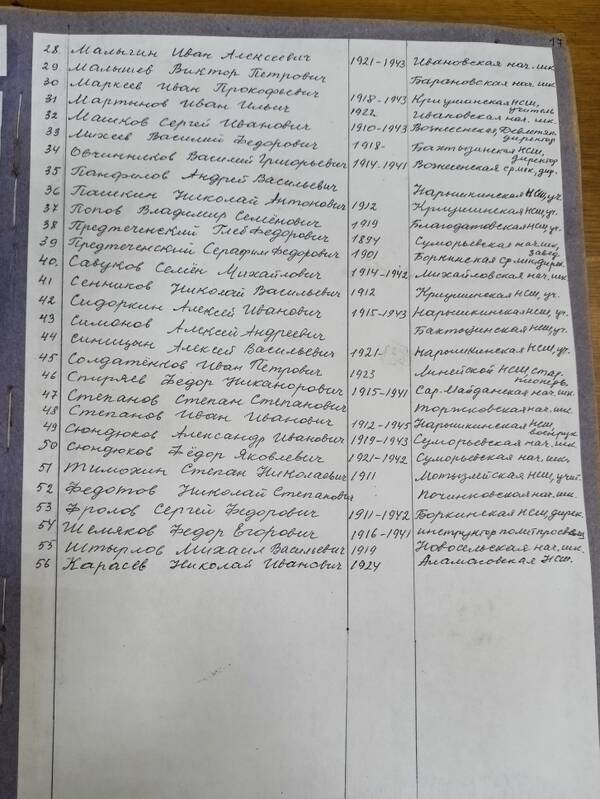 17
28. Малыгин Иван Алексеевич 1921-1943 Ивановская нач. шк.
29 Малышев Виктор Петрович Барановская нач. шк.
30 Маркеев Иван Прокофьевич 1918-1943 Криушинская НСШ, учитель
31 Мартынов Иван Ильич 1922 Ивановская нач. шк.
32 Машков Сергей Иванович 1910-1943 Вознесенская, директор
33 Михеев Василий Федорович 1918- Бахтызинская НСШ, директор
34 Овчинников Василий Григорьевич 1914-1941 Вознесенская ср. шк., дир.
35 Панфилов Андрей Васильевич
36 Пашкин Николай Антонович 1912 Нарышкинская НСШ, уч.
37 Попов Владимир Семёнович 1919 Криушинская НСШ, уч.
38 Предтеченский Глеб Федорович 1894 Благодатовская НСШ, уч.
39 Предтеченский Серафим Федорович 1901 Суморьевская нач. шк., завед.
40. Савуков Семён Михайлович 1914-1942 Боркинская ср. шк.
Михайловская нач. шк.
41 Сенников Николай Васильевич 1912 Криушинская НСШ, уч.
42 Сидоркин Алексей Иванович 1915-1943 Нарышкинская НСШ, уч.
43 Симонов Алексей Андреевич Бахтызинская НСШ, уч.
44 Синицын Алексей Васильевич 1921- Нарышкинская НСШ, уч.
45 Солдатёнков Иван Петрович 1923 Линейской НСШ, стар. пионерв.
46 Спиряев Федор Никанорович 1915-1941 Сар. Майданская нач. шк.
47 Степанов Степан Степанович Торжковская нач. шк.
48 Степанов Иван Иванович 1912-1945 Нарышкинская НСШ, военрук
49 Сюндюков Александр Иванович 1919-1943 Суморьевская нач. шк.
50 Сюндюков Фёдор Яковлевич 1921-1942 Суморьевская нач. шк.
51 Тимохин Степан Николаевич 1911 Мотызлейская НСШ, учит.
52 Федотов Николай Степанович Починковская нач. шк.
53 Фролов Сергей Федорович 1911-1942 Боркинская НСШ, дирек.
54 Шемяков Федор Егорович 1916-1941 инструктор политпросвещ.
55 Штырлов Михаил Васильевич 1919 Новосельская нач. шк.
56 Карасёв Николай Иванович 1924 Аламасовская НСШ.